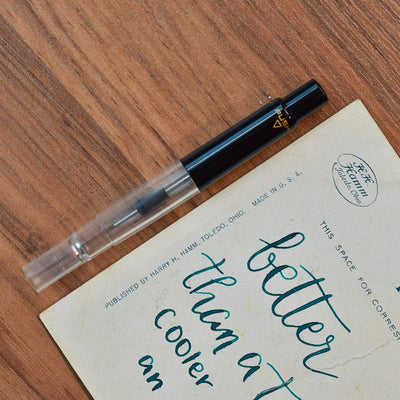 PUSH
H.H.
Hamm
Toledo, Ohio
PUBLISHED BY HARRY H. HAMM, TOLEDO, OHIO. MADE IN U. S. A.
THIS SPACE FOR CORRES
better
than a
cooler
an